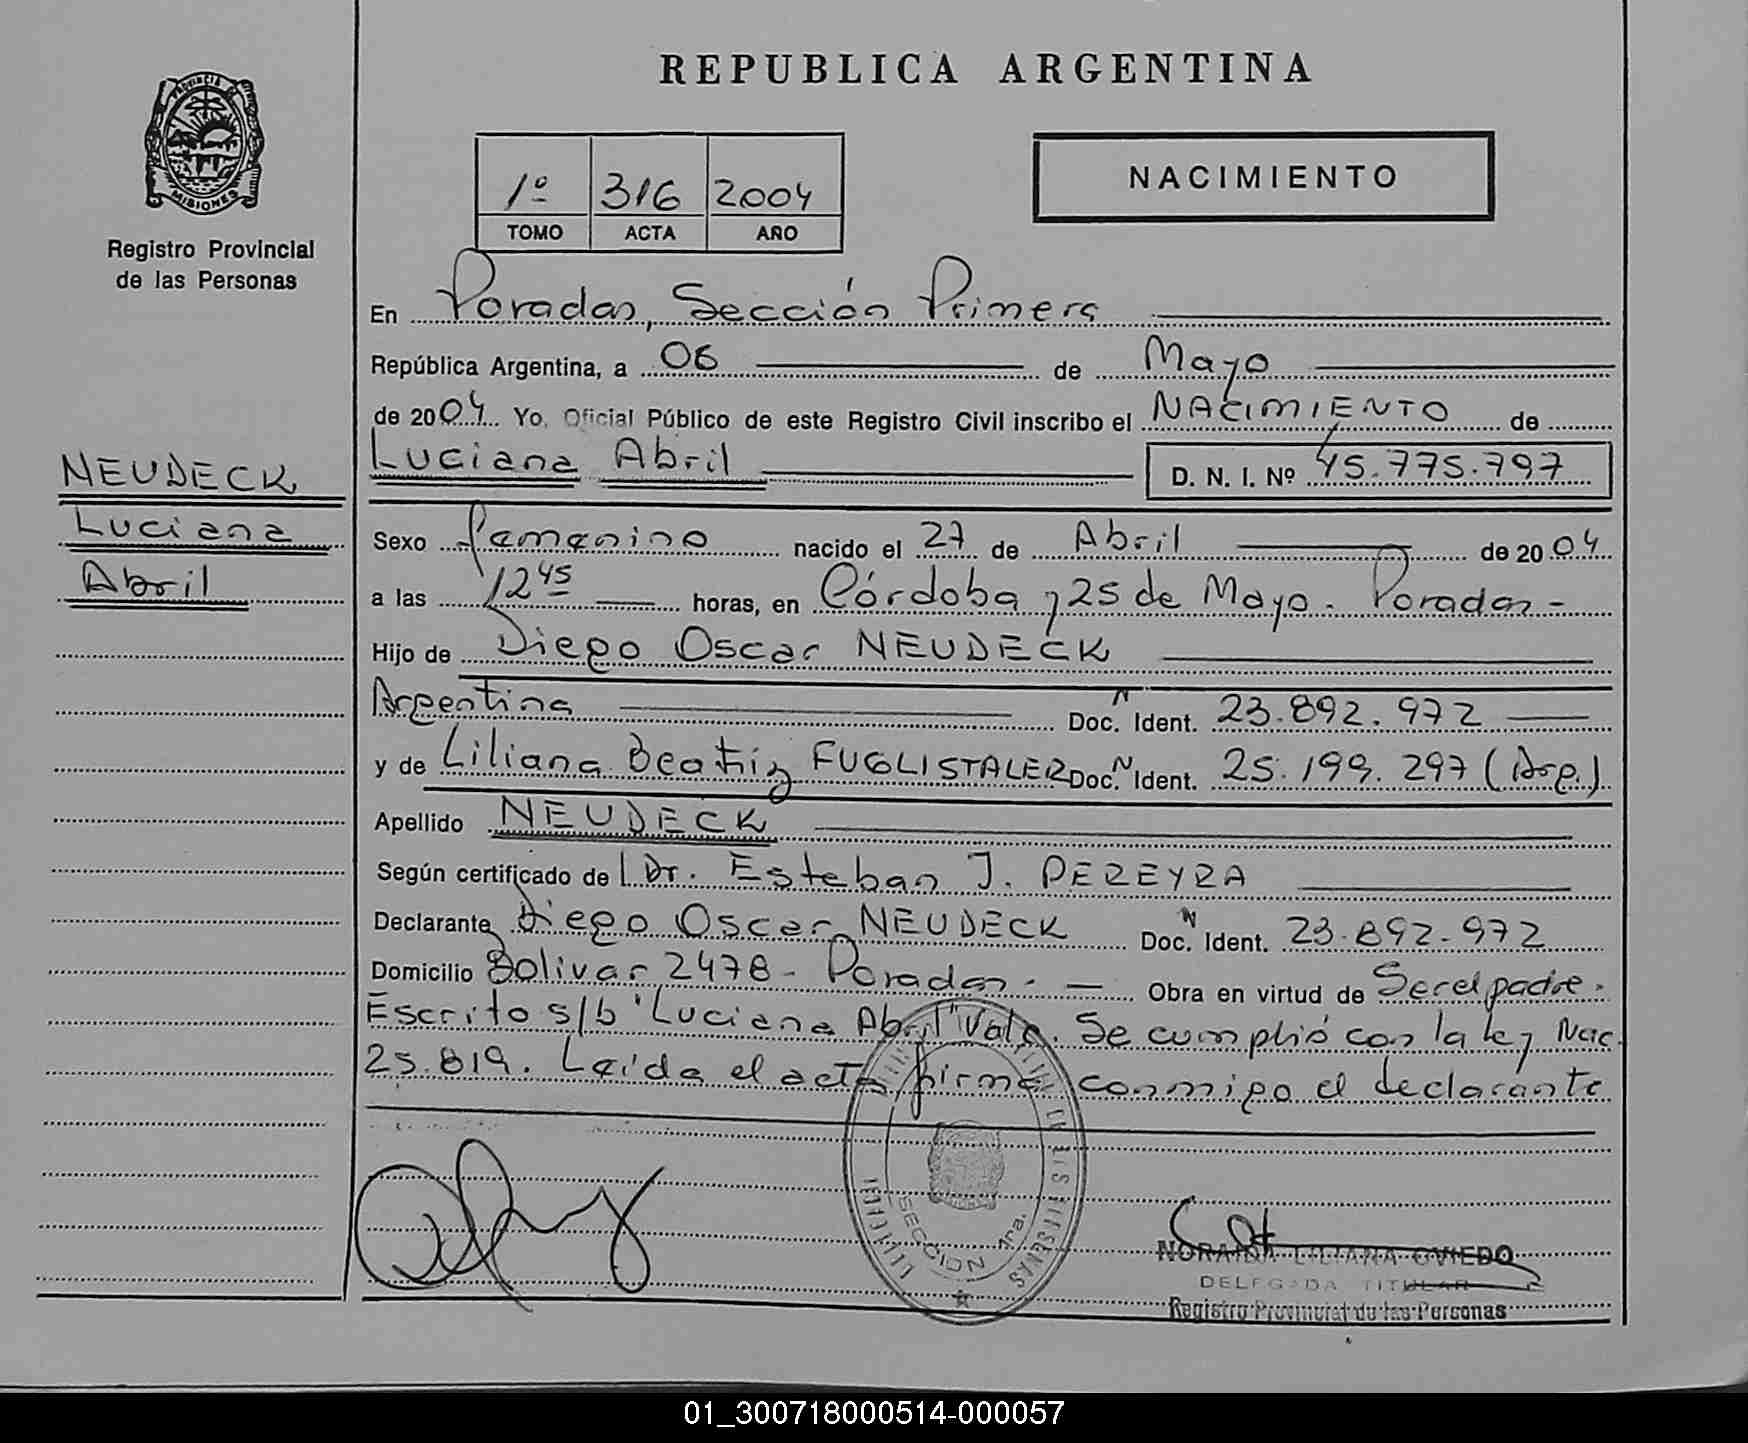 REPUBLICA ARGENTINA
PROVINCIA DE MISIONES
Registro Provincial
de las Personas
1º 316 2004
TOMO ACTA AÑO
NACIMIENTO
En Posadas, Sección Primera
República Argentina, a 06 de Mayo
de 2004 Yo, Oficial Público de este Registro Civil inscribo el NACIMIENTO de
Luciana Abril D. N. I. Nº 45.775.797
NEUDECK
Luciana
Abril
Sexo Femenino nacido el 27 de Abril de 2004
a las 12 45 horas, en Córdoba y 25 de Mayo. Posadas-
Hijo de Diego Oscar NEUDECK
Argentina Doc. N Ident. 23.892.972
y de Liliana Beatriz FUGLISTALER Doc. N Ident. 25.199.297 (Arg.)
Apellido NEUDECK
Según certificado de l Dr. Esteban J. PEREYRA
Declarante Diego Oscar NEUDECK Doc. N Ident. 23.892.972
Domicilio Bolivar 2478- Posadas.- Obra en virtud de Ser el padre.
Escrito s/b "Luciana Abril" Vale. Se cumplió con la ley Nac.
25.819. Leída el acta firma conmigo el declarante
SECCION 1ra.
NORAIDA LILIANA OVIEDO
DELEGADA TITULAR
Registro Provincial de las Personas
01_300718000514-000057